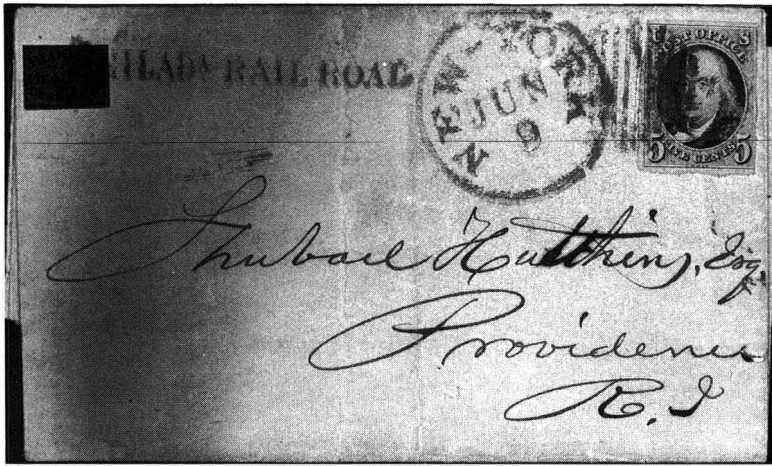 RAIL ROAD
NEW-YORK
JUN
9
U S
POST OFFICE
5 FIVE CENTS 5
Shubael Hutchins, Esq.
Providence
R.I